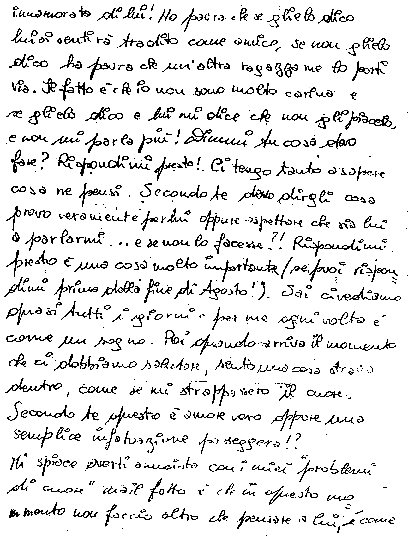 innamorata di lui! Ho paura che se glielo dico
lui si sentirà tradito come amico, se non glielo
dico ho paura che un'altra ragazza me lo porti
via. Il fatto è che io non sono molto carina e
se glielo dico e lui mi dice che non gli piaccio,
e non mi parla più! Dimmi tu cosa devo
fare? Rispondimi presto! Ci tengo tanto a sapere
cosa ne pensi. Secondo te devo dirgli cosa
provo veramente per lui oppure aspettare che sia lui
a parlarmi... e se non lo facesse?! Rispondimi
presto è una cosa molto importante (se puoi rispon
dimi prima della fine di Agosto!). Sai ci vediamo
quasi tutti i giorni e per me ogni volta è
come un sogno. Poi quando arriva il momento
che ci dobbiamo salutare, sento una cosa strana
dentro, come se mi strappassero il cuore.
Secondo te questo è amore vero oppure una
semplice infatuazione passeggera!?
Mi spiace averti annoiato con i miei "problemi
di cuore" ma il fatto è che in questo mo
mento non faccio altro che pensare a lui, è come